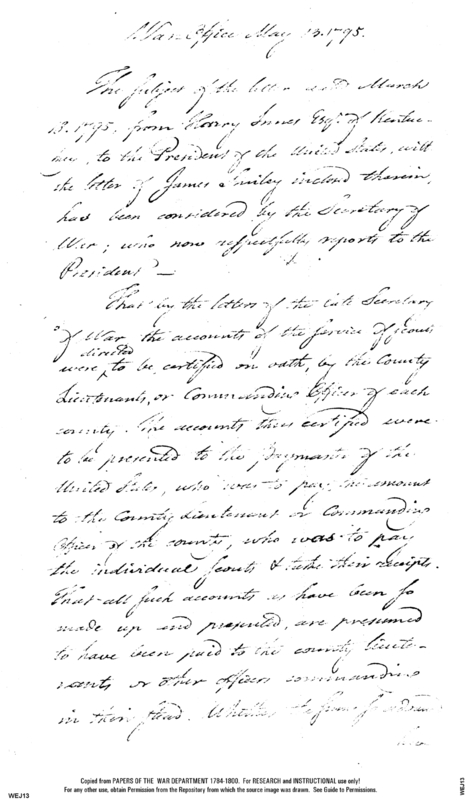 War Office May 13. 1795.
The subject of the letter dated March
13. 1795, from Harry Innes Esqr. of Kentuc-
key, to the President of the United States, with
the letter of James Smiley inclosed therein,
has been considered by the Secretary of
War; who now respectfully reports to the
President —
That by the letters of the late Secretary
of War the accounts of the service of scouts
directed
were to be certified on oath, by the County
Lieutenants, or Commanding Officer of each
county. The accounts thus certified were
to be presented to the Paymaster of the
United States, who was to pay the amount
to the County Lieutenant or Commanding
Officer of the county, who was to pay
the individual scouts & take their receipts.
That all such accounts as have been so
made up and presented, are presumed
to have been paid to the county lieute-
nants or other officers commanding
in their stead. Whether the
Copied from PAPERS OF THE WAR DEPARTMENT 1784-1800. For RESEARCH and INSTRUCTIONAL use only!
For any other use, obtain Permission from the Repository from which the source image was drawn. See Guide to Permissions.
WEJ13
WEJ13